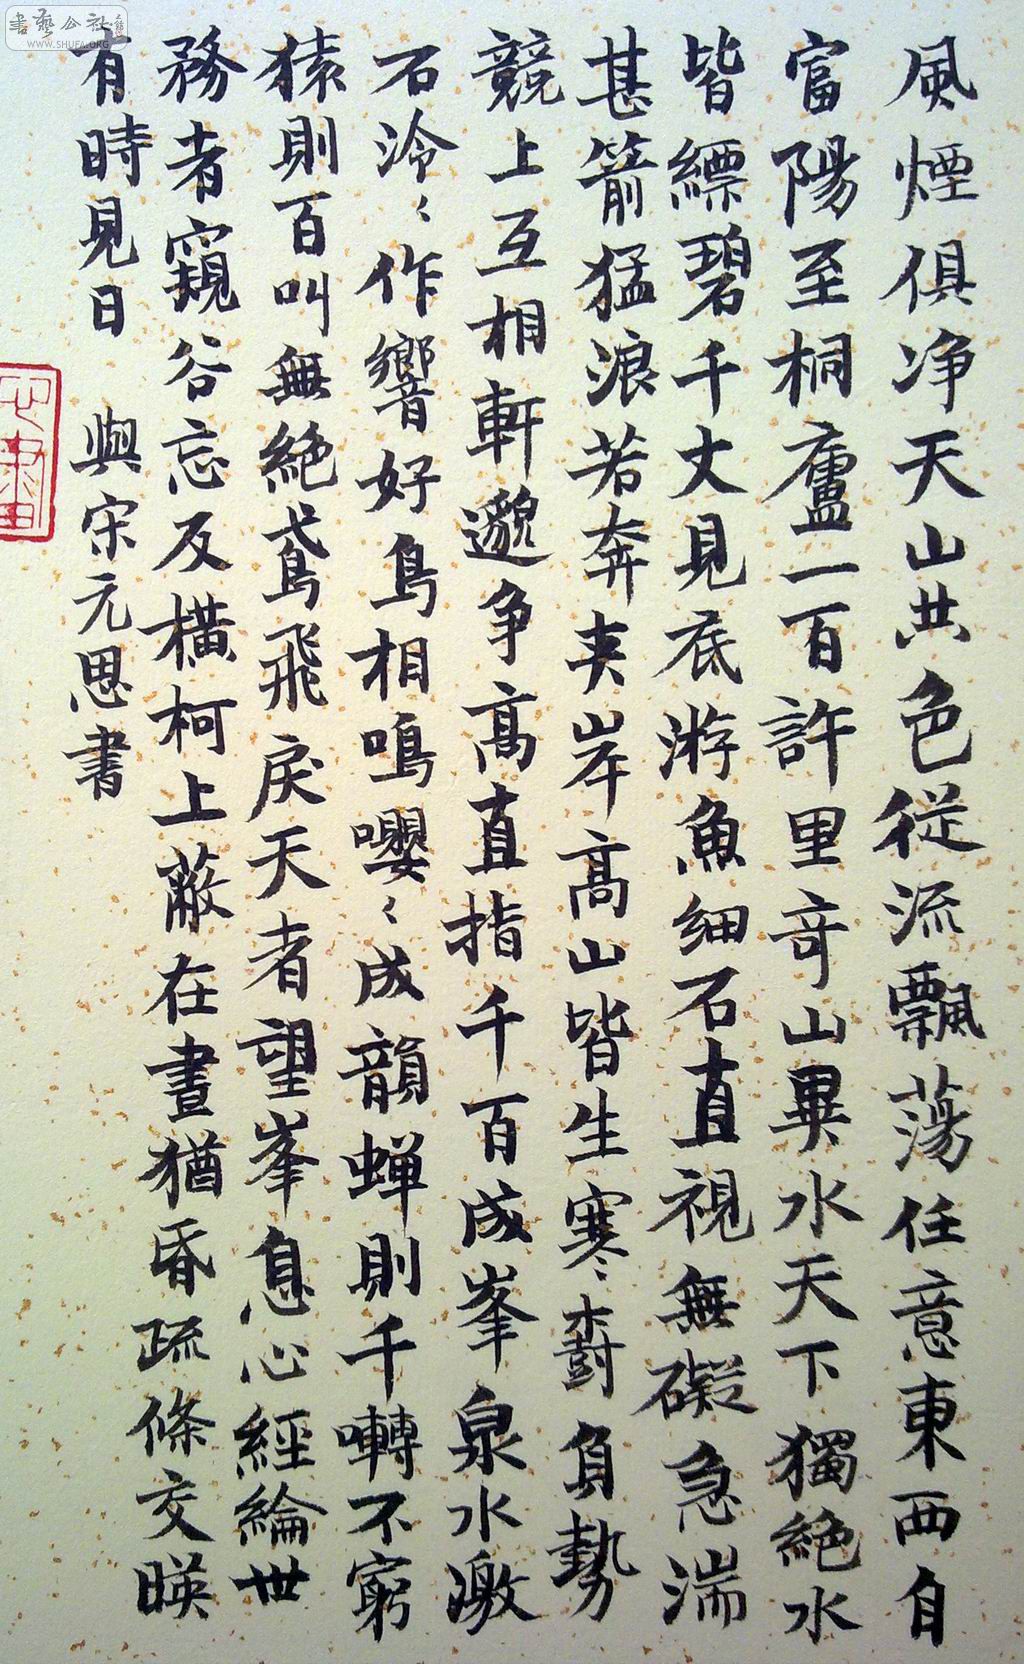 風煙俱净天山共色從流飄蕩任意東西自
富陽至桐廬一百許里奇山異水天下獨絶水
皆縹碧千丈見底游魚細石直視無礙急湍
甚箭猛浪若奔夾岸高山皆生寒樹負勢
競上互相軒邈争高直指千百成峯泉水激
石泠〻作響好鳥相鳴嚶〻成韻蝉則千囀不窮
猿則百叫無絶鳶飛戾天者望峯息心經綸世
務者窺谷忘反橫柯上蔽在晝猶昏疏條交暎
有時見日 與宋元思書
書藝公社
WWW.SHUFA.ORG